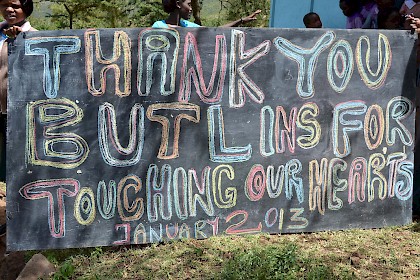 THANK YOU
BUTLINS FOR
TOUCHING OUR HEARTS
JANUARY 2013